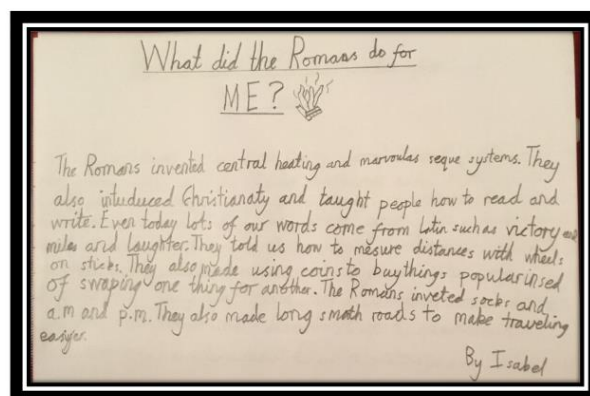 What did the Romans do for
ME?
The Romans invented central heating and marvoulas seque systems. They
also intuduced Christianaty and taught people how to read and
write. Even today lots of our words come from latin such as victory and
miles and laughter. They told us how to mesure distances with wheels
on sticks. They also made using coins to buy things popular insed
of swaping one thing for another. The Romans inveted socks and
a.m and p.m. They also made long smoth roads to make traveling
easyer.
By Isabel